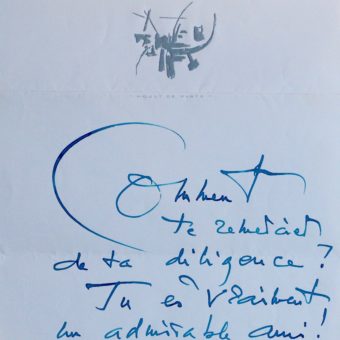 Comment
te remercier
de ta diligence?
Tu es vraiment
un admirable ami!